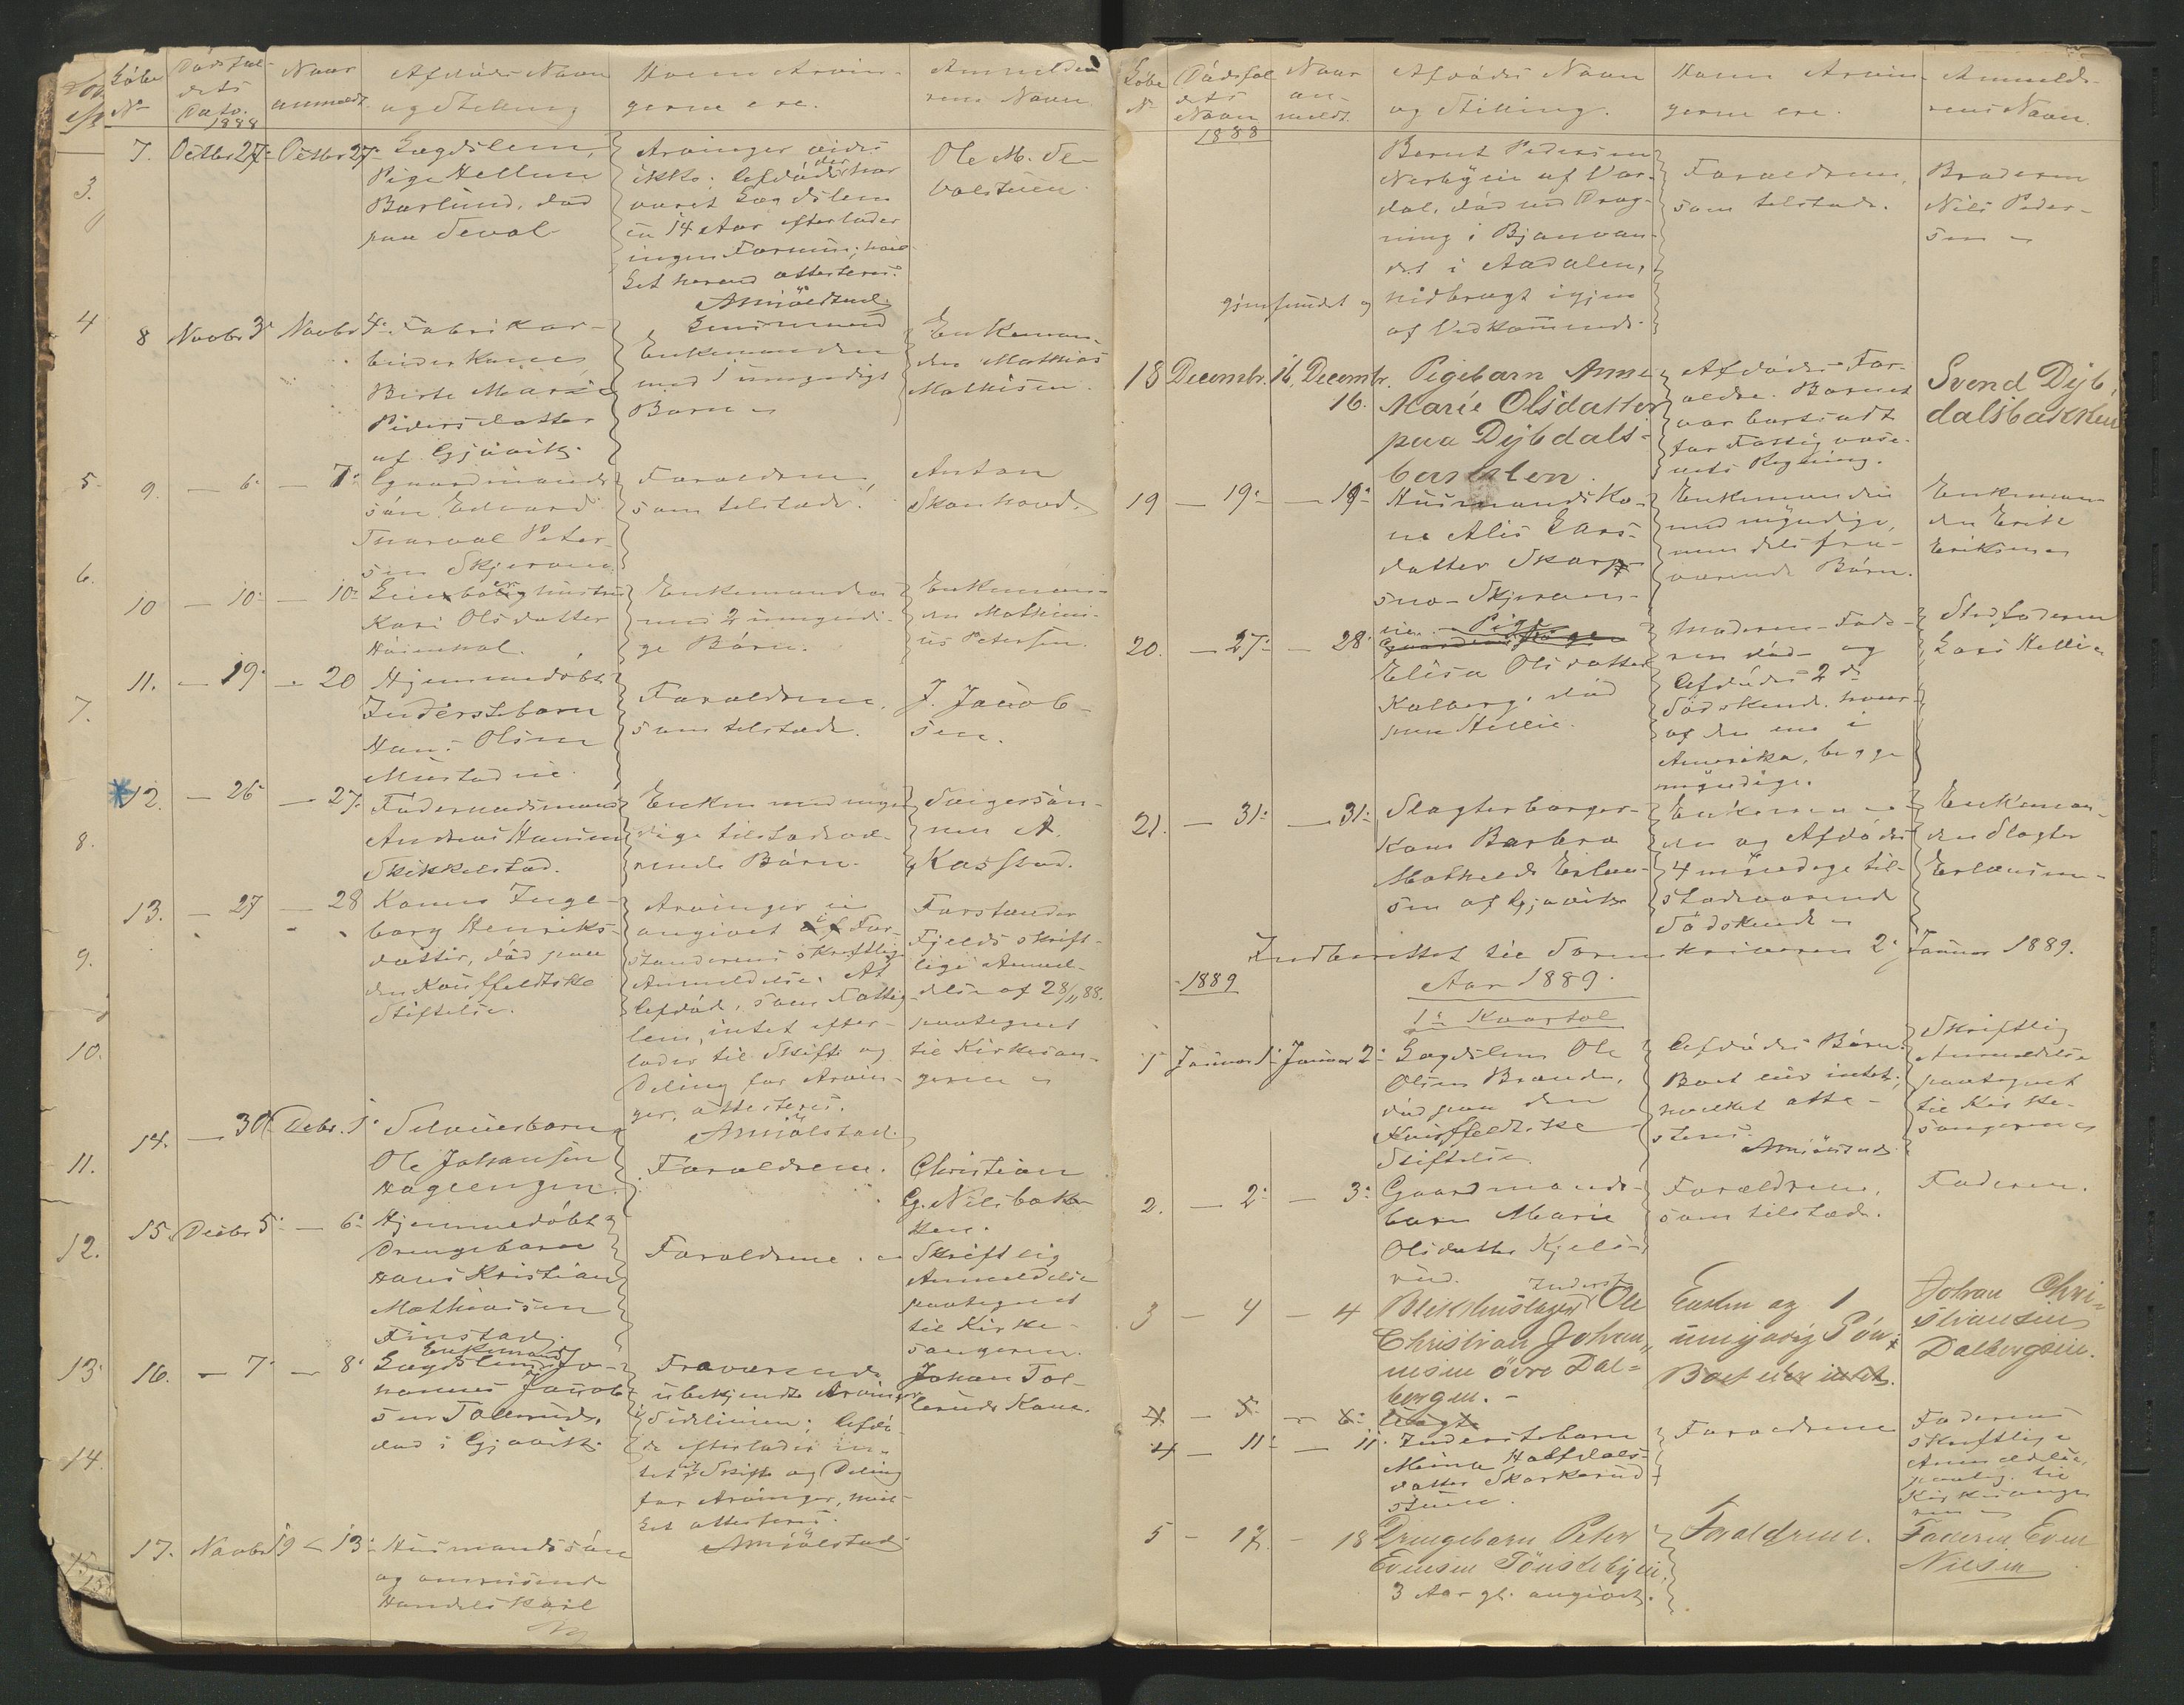 Löbe
No
Dödsfal-
dets
Dato.
1888
Naar
anmeldt.
Afdödes Navn
og Stilling
Hvem Arvin-
gerne ere.
Anmelde-
rens Navn
7. Octbr 27. Octbr 27.
Lægdslem,
Pige Helene
Barlund, död
paa Sevol
Arvinger vides
ikke; Afdöde der har
været Lægdslem
i 14 Aar efterlader
ingen Formue; hvil-
ket herved attesteres.
AMjölstad
Ole M. Se-
volstuen.
8 Novbr 3. Novbr 4.
Fabrikar-
beider Kone
Birte Marie
Pedersdatter
af Gjövik.
Enkemanden
med 1 umyndigt
Barn
Enkeman-
den Mathias
Mathisen.
9. — 6. — 7.
Gaardmands
sön Edvard
Thorval Peter-
sen Skjeran
Forældrene,
som tilstede.
Anton
Skonhovd.
10 — 10. — 10.
Kari Olsdatter
Enkemanden
med 2 umyndi-
ge Börn.
Enkeman-
den Mathini-
us Petersen.
11. — 19. — 20
Hjemmedöbt
Inderstebarn
Hans Olsen
Mustadeie.
Forældrene,
som tilstede.
J. Jacob-
sen.
12. — 26 — 27.
Födernaadsmand
Andreas Hansen
Skikkelstad.
Enken med myn-
dige tilstedevæ-
rende Börn.
Svigersön-
nen A.
Kasstad.
13. — 27 — 28
Kone Inge-
borg Henriks-
datter, död paa
den Kauffeldtske
Stiftelse.
Arvinger ei
angivet i For-
standerens skriftlige
Anmeldelse. At
Afdöd, som Fattig-
lem, intet efter-
lader til Skifte og
Deling for Arvin-
ger, attesteres.
AMjölstad.
Forstander
Fjelds skrift-
lige Anmel-
delse af 28/11 88.
paategnet
til Kirkesan-
geren
14. — 30. Debr. 1.
Selveierbarn
Ole Johansen
Hageengen
Forældrene.
Christian
G. Nilsbak-
ken.
15. Decbr 5. — 6.
Hjemmedöbt
Drengebarn
Hans Kristian
Mathiassen
Finstad.
Forældrene.
Skriftlig
Anmeldelse
paategnet
til Kirke-
sangeren.
16. — 7. — 8.
Enkemand
Lægdslem Jo-
hannes Jacob-
sen Tollerud,
död i Gjövik.
Fraværende
ubekjendte Arvinger
i Sidelinien; Afdö-
de efterlader in-
tet til Skifte og Deling
for Arvinger, hvil-
ket attesteres.
AMjölstad
Johan Tol-
leruds Kone.
17. Novbr 19 — 13.
Husmandssön
og omreisende
Handelskarl
Löbe
No
Dödsfal
dets
Navn
1888
Naar
an-
meldt.
Afdödes Navn
og Stilling.
Hvem Arvin-
gerne ere.
Anmelde-
rens Navn.
Bernt Pedersen
Nerbyeie af Var-
dal, död ved Drug-
ning i Bjonvan-
det i Aadalen,
gjenfundet og
nedbragt igjen
af Vedkommende.
Forældrene,
som tilstede.
Broderen
Nils Peder-
sen
18 Decembr. 16. Decembr. 16.
Pigebarn Anne
Marie Olsdatter
paa Dybdals-
bakken.
Afdödes For-
ældre. Barnet
var bortsadt
for Fattigvæse-
nets Regning.
Svend Dyb,
dalsbakken
19 — 19. — 19.
Husmandsko-
ne Alis Lars-
datter Skarp-
sno-Skjeraneie.
Enkemanden
med myndige,
men dels fra-
værende Börn.
Enkeman-
den Erik
Eriksen
20. — 27. — 28.
Pige
Elisa Olsdatter
Kalberg, död
paa Hellie.
Moderen - Fade-
ren död - og
Afdödes 2de
Södskende, hvor-
af den ene i
Amerika, begge
myndige.
Stedfaderen
Lars Hellie
21. — 31. — 31.
Slagterborger-
Kone Barbra
Mathilde Erlan-
sen af Gjövik
Enkeman-
den og Afdödes
4 myndige til-
stedeværende
Södskende
Enkeman-
den Slagter
Erlansen
Indberettet til Sorenskriveren 2. Januar 1889.
1889
Aar 1889.
1. Kvartal
1 Januar 1. Januar 2.
Lægdslem Ole
Olsen Brænde,
död paa den
Kauffeldtske
Stiftelse.
Afdödes Börn.
Boet eier intet;
hvilket atte-
steres.
AMjölstad
Skriftlig
Anmeldelse
paategnet
til Kirke-
sangeren
2. — 2. — 3.
Gaardmands-
barn Marie
Olsdatter Kjels-
rud.
Forældrene,
som tilstede.
Faderen.
3 — 4 — 4
Inderst
Blikkenslager Ole
Christian Johan-
nesen övre Dal-
bergen.
Enken og 1
umyndig Sön
Boet eier intet.
Johan Chri-
stiansen
Dalbergseie.
4 — 5. — 6.
4 — 11. — 11.
Inderstebarn
Mina Halfdans-
datter Skarkerud-
stuen.
Forældrene
Faderens
skriftlige
Anmeldelse,
paateg. til
Kirkesange-
ren
5 — 17. — 18
Drengebarn Peter
Evensen Tönsethseie.
3 Aar gl. angivet.
Forældrene.
Faderen Even
Nilsen